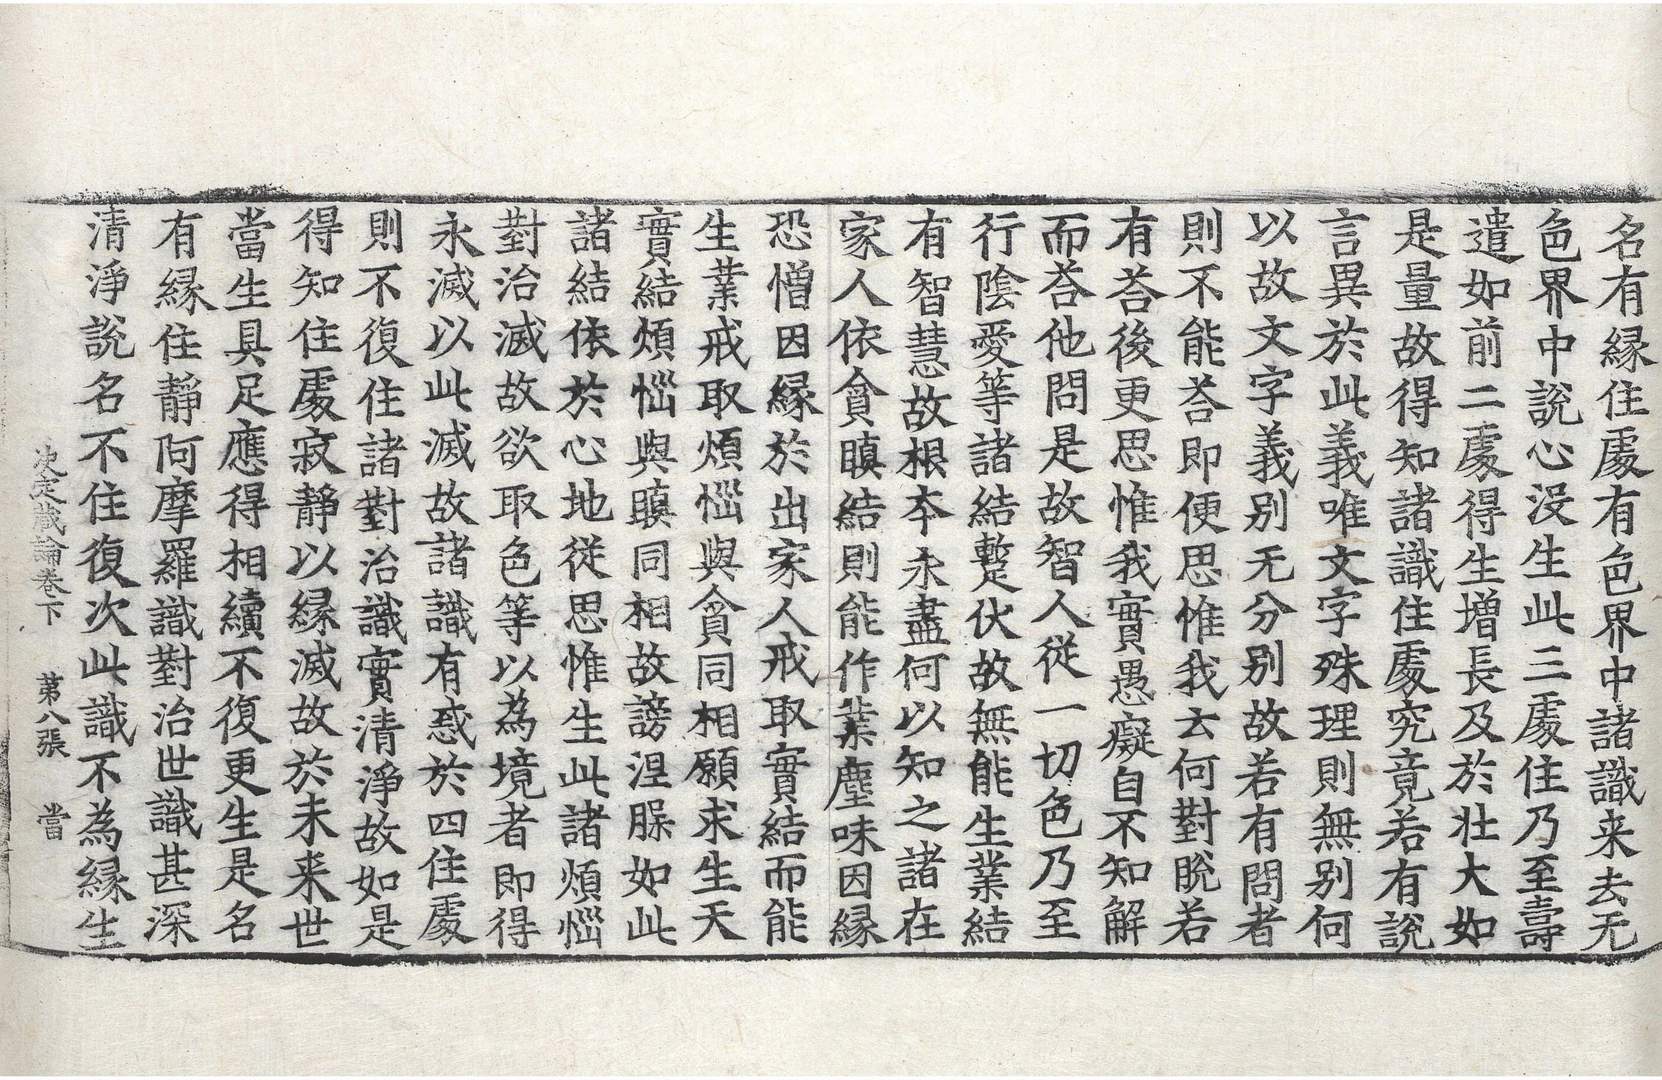 名有縁住處有色界中諸識来去无
色界中說心没生此三處住乃至壽
遣如前二處得生增長及於壯大如
是量故得知諸識住處究竟若有說
言異於此義唯文字殊理則無別何
以故文字義別无分別故若有問者
則不能荅即便思惟我去何對脫若
有荅後更思惟我實愚癡自不知解
而荅他問是故智人從一切色乃至
行陰愛等諸結蹔伏故無能生業結
有智慧故根夲永盡何以知之諸在
家人依貪瞋結則能作業塵味因縁
恐憎因縁於出家人戒取實結而能
生業戒取煩惱與貪同相願求生天
實結煩惱與瞋同相故謗涅槃如此
諸結依於心地從思惟生此諸煩惱
對治滅故欲取色等以為境者即得
永滅以此滅故諸識有惑於四住處
則不復住諸對治識實清淨故如是
得知住處寂靜以縁滅故於未来世
當生具足應得相續不復更生是名
有縁住靜阿摩羅識對治世識甚深
清淨說名不住復次此識不為縁生
决定藏論卷下　第八張　當